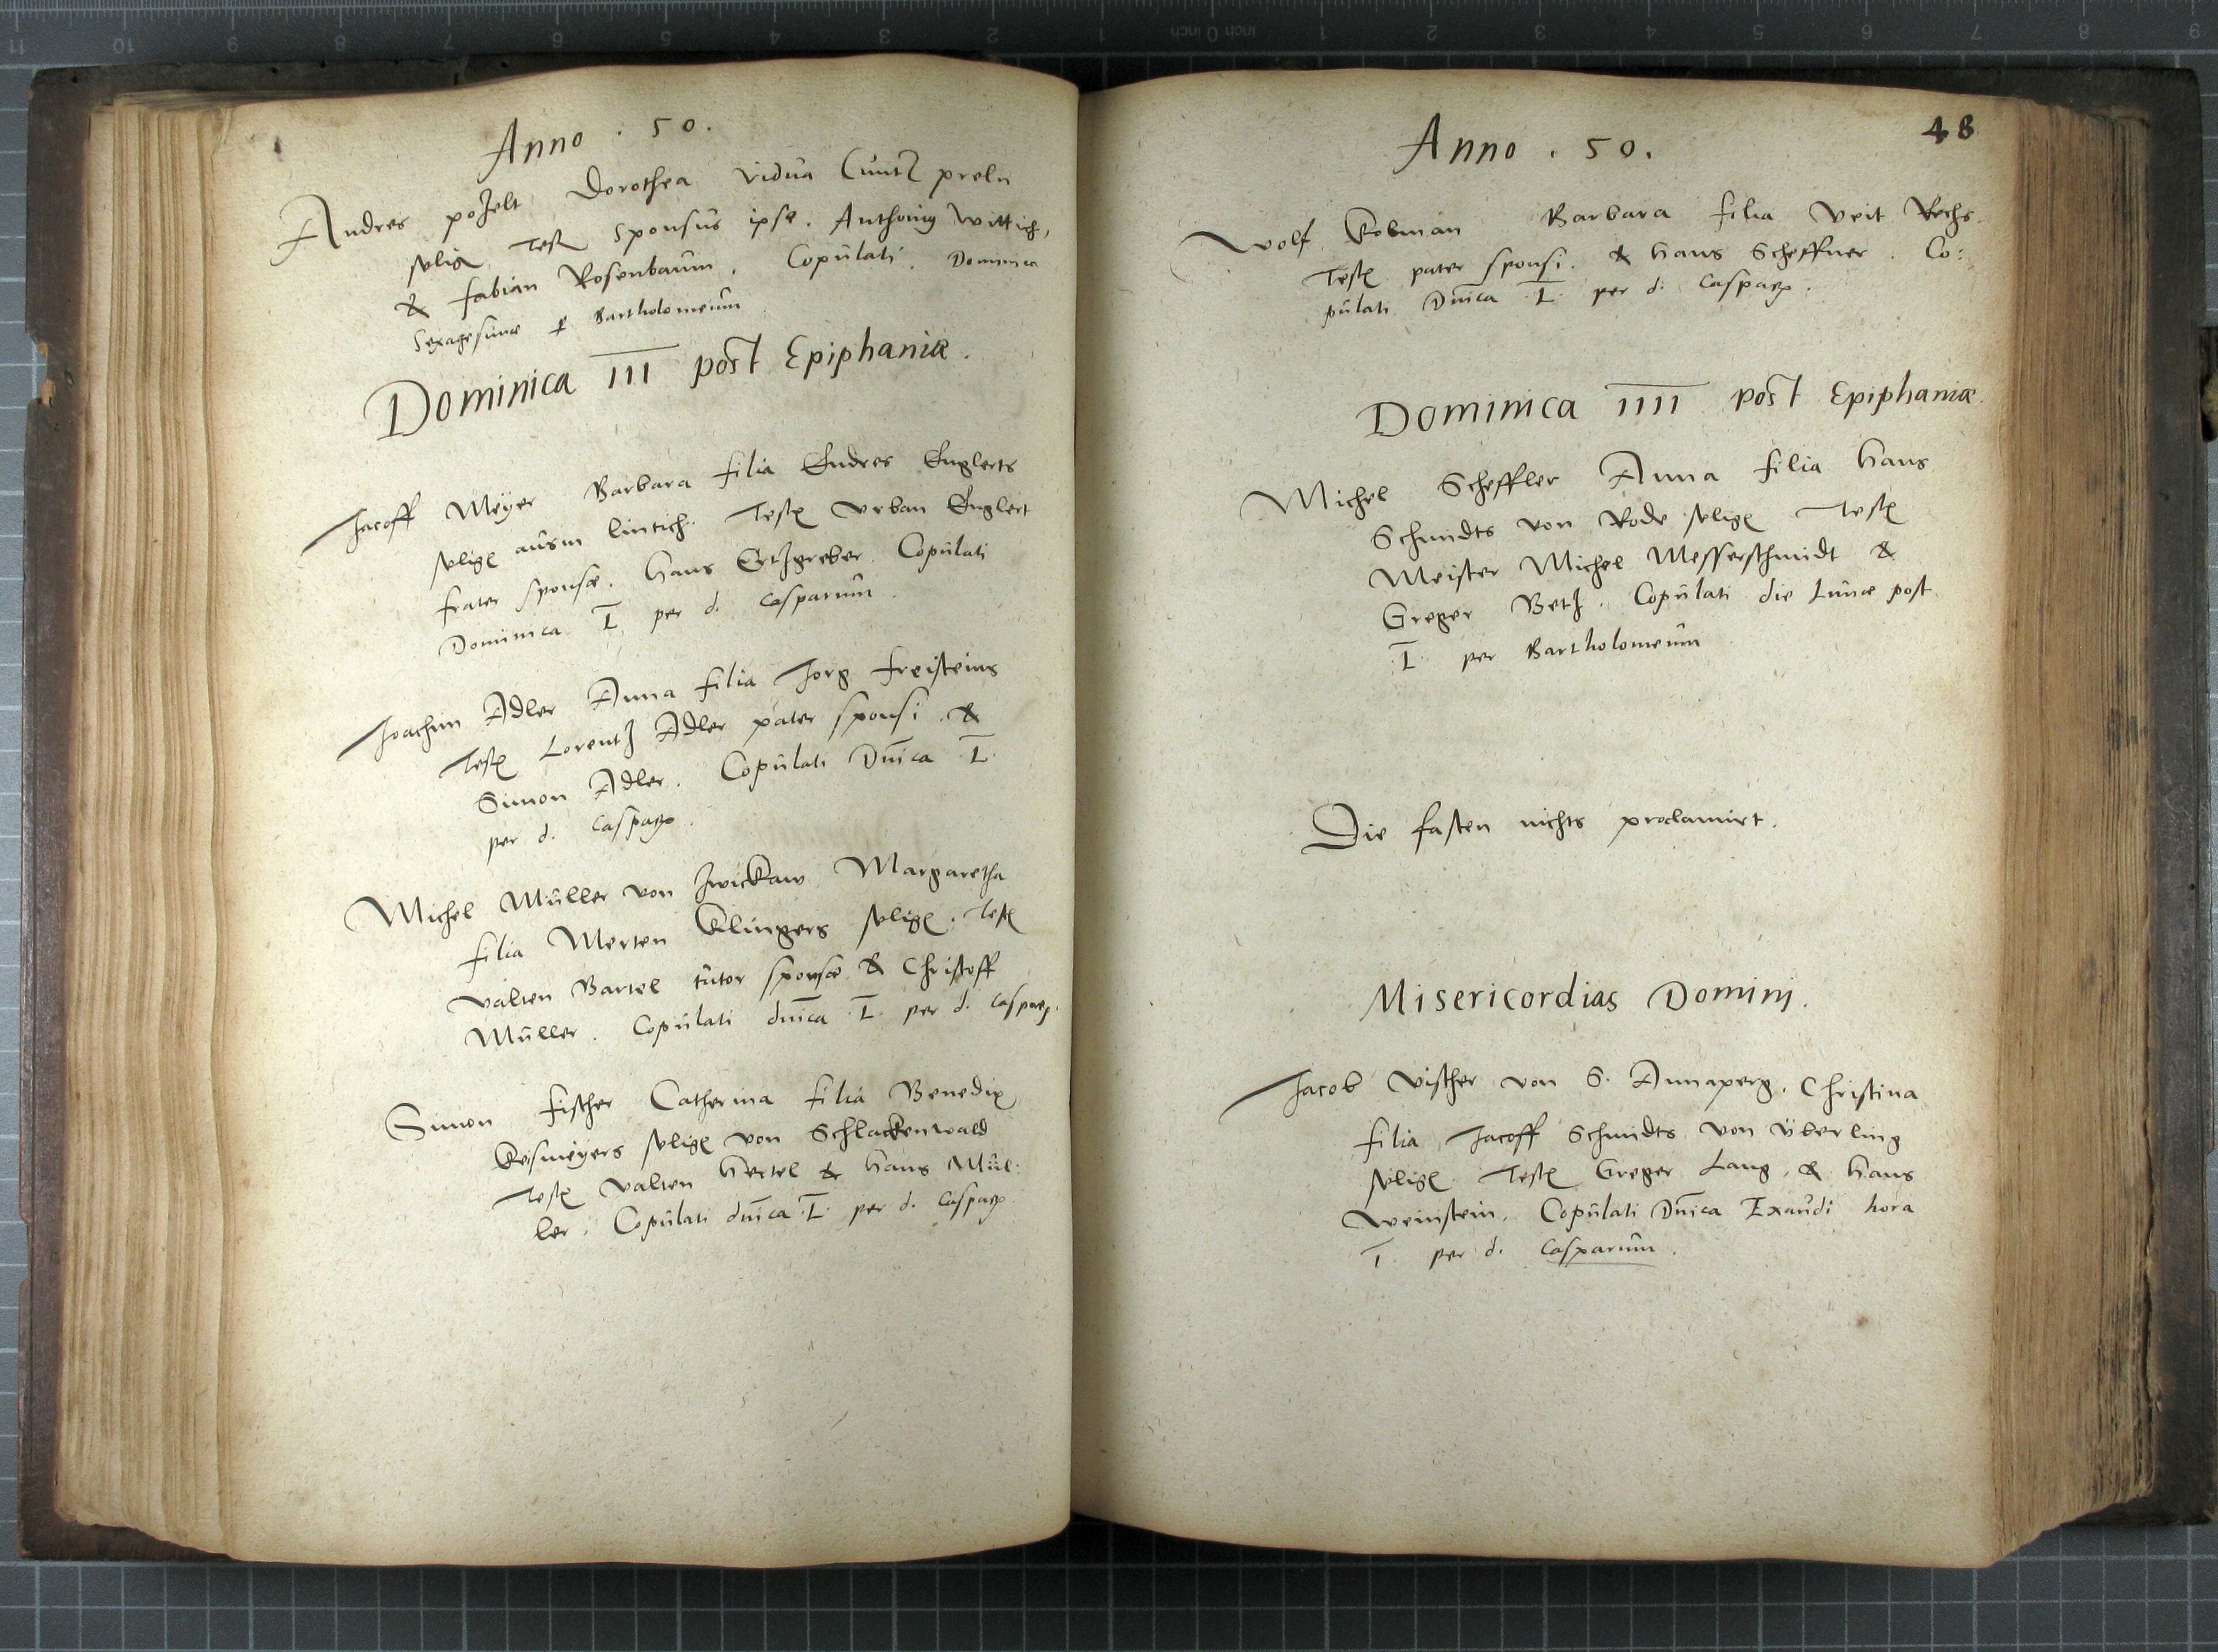 Anno . 50 .
Andres pozelt Dorothea vidua Cuntz preln
selig Test Sponsus ipse . Anthonig Wittich,
& fabian Rosenbaum . Copulati . Dominica
Sexagesimæ p Bartholomeum
Dominica III post Epiphaniæ .
Jacoff Meyer Barbara filia Endres Englerts
selig ausm lintich . Test Urban Englert
frater sponsæ . Hans Ertzgreber . Copulati
Dominica I per d. Casparum .
Joachim Adler Anna filia Jorg freisteins
Test Lorentz Adler pater sponsi . &
Simon Adler . Copulati Dnica I
per d. Caspar .
Michel Müller von Zwickaw Margaretha
filia Merten Klingers selig . Test
Valten Bartel tutor sponsæ & Christoff
Müller . Copulati dnica I per d. Caspar .
Simon fischer Catherina filia Benedix
Resmeyers selig von Schlackenwald
Test Valten Hertel & Hans Mül:
ler . Copulati dnica I per d. Caspar
48
Anno . 50 .
Wolf Kolman Barbara filia Veit Rechs .
Test pater sponsi . & Hans Scheffner . Co:
pulati Dnica I per d. Caspar .
Dominica IIII post Epiphaniæ .
Michel Scheffler Anna filia Hans
Schmidts von Rode selig Test
Meister Michel Messerschmidt &
Greger Betz . Copulati die Lunæ post
I per Bartholomeum
Die fasten nichts proclamirt .
Misericordias Dominj .
Jacob Vischer von S. Annaperg . Christina
filia Jacoff Schmidts von Überling
selig Test Greger Lang , & Hans
Weinstein . Copulati Dnica Exaudi hora
I per d. Casparum .